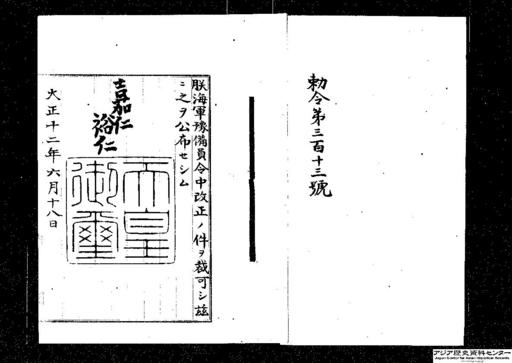 勅令第三百十三號
朕海軍豫備員令中改正ノ件ヲ裁可シ玆
ニ之ヲ公布セシム
嘉仁
裕仁
天皇
御璽
大正十二年六月十八日
アジア歴史資料センター
Japan Center for Asian Historical Records